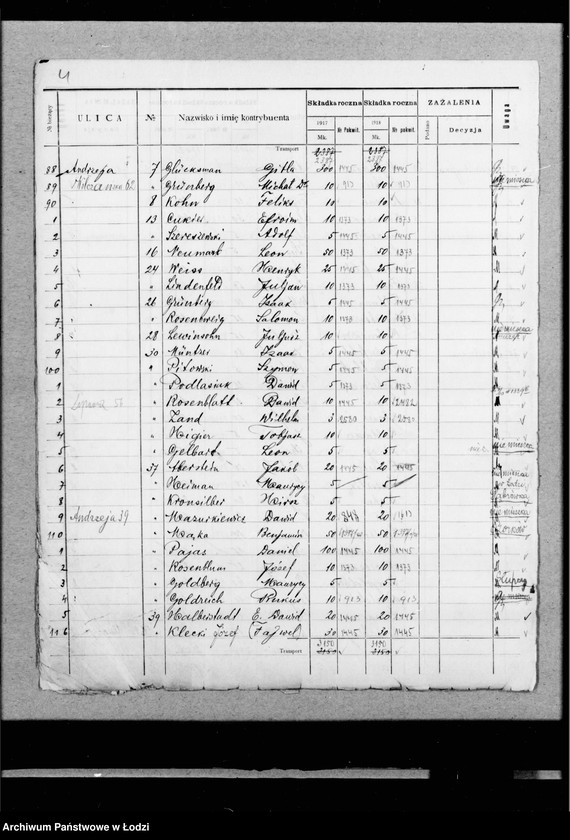 4
№ bieżący ULICA № Nazwisko i imię kontrybuenta Składka roczna Składka roczna ZAŻALENIA Uwaga
1917 1918
Mk. № Pokwit. Mk. № pokwit. Podano Decyzja
Transport 2387 2387
88 Andrzeja 7 Glücksman Gitla 300 1445 300 1445
89 " Michał Dr 10 917 10 917
90 8 Kohn Feliks 10 10
1 13 Cukier Efroim 10 1373 10 1373
2 " Szereszewski Adolf 5 1445 5 1445
3 16 Neumark Leon 50 1373 50 1373
4 24 Weiss Henryk 25 1445 25 1445
5 " Lindenfeld Juljan 10 1373 10 1373
6 26 Grünberg Izaak 5 1445 5 1445
7 " Rosenzweig Salomon 10 1373 10 1373
8 28 Lewinsohn Juljusz 10 10
9 30 Müntzer Izaak 5 1445 5 1445
100 " Pitowski Szymon 5 1445 5 1445
1 " Podlasiak Dawid 5 1373 5 1373
2 " Rosenblatt Dawid 10 1445 10 2482
3 " Zand Wilhelm 3 3
4 " Higier Tobjasz 10 10
5 " Gelbart Leon 5 5
6 37 Jakób 20 1445 20 1445
7 " Heiman Maurycy 5 5
8 " Kronsilber Hirsz 5 5
9 Andrzeja 39 " Mazurkiewicz Dawid 20 20
110 " Mąka Benjamin 50 50
1 " Pajas Daniel 100 1445 100 1445
2 " Rosenblum Józef 10 1373 10 1373
3 " Goldberg Maurycy 5 5
4 " Goldreich Pinkus 10 913 10 913
5 39 Halberstadt E. Dawid 20 1445 20 1445
116 " Klecki Józef (Fajwel) 30 1445 30 1445
3150 3150
Transport 3150 3150
Archiwum Państwowe w Łodzi